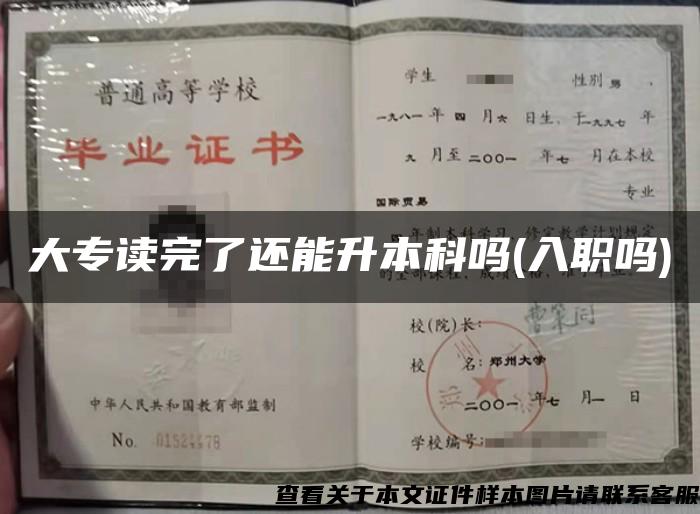 普通高等学校
毕业证书
中华人民共和国教育部监制
No. 01524478
学生 性别 男 ，
一九八一 年 四 月 六 日生、于一九九七 年
九 月至 二〇〇一 年 七 月在本校
国际贸易 专业
四 年制本科学习，修完教学计划规定
的全部课程，成绩合格，准予毕业。
大专读完了还能升本科吗(入职吗)
校(院)长：
校 名：郑州大学
二〇〇一 年 七 月 一 日
学校编号：
查看关于本文证件样本图片请联系客服